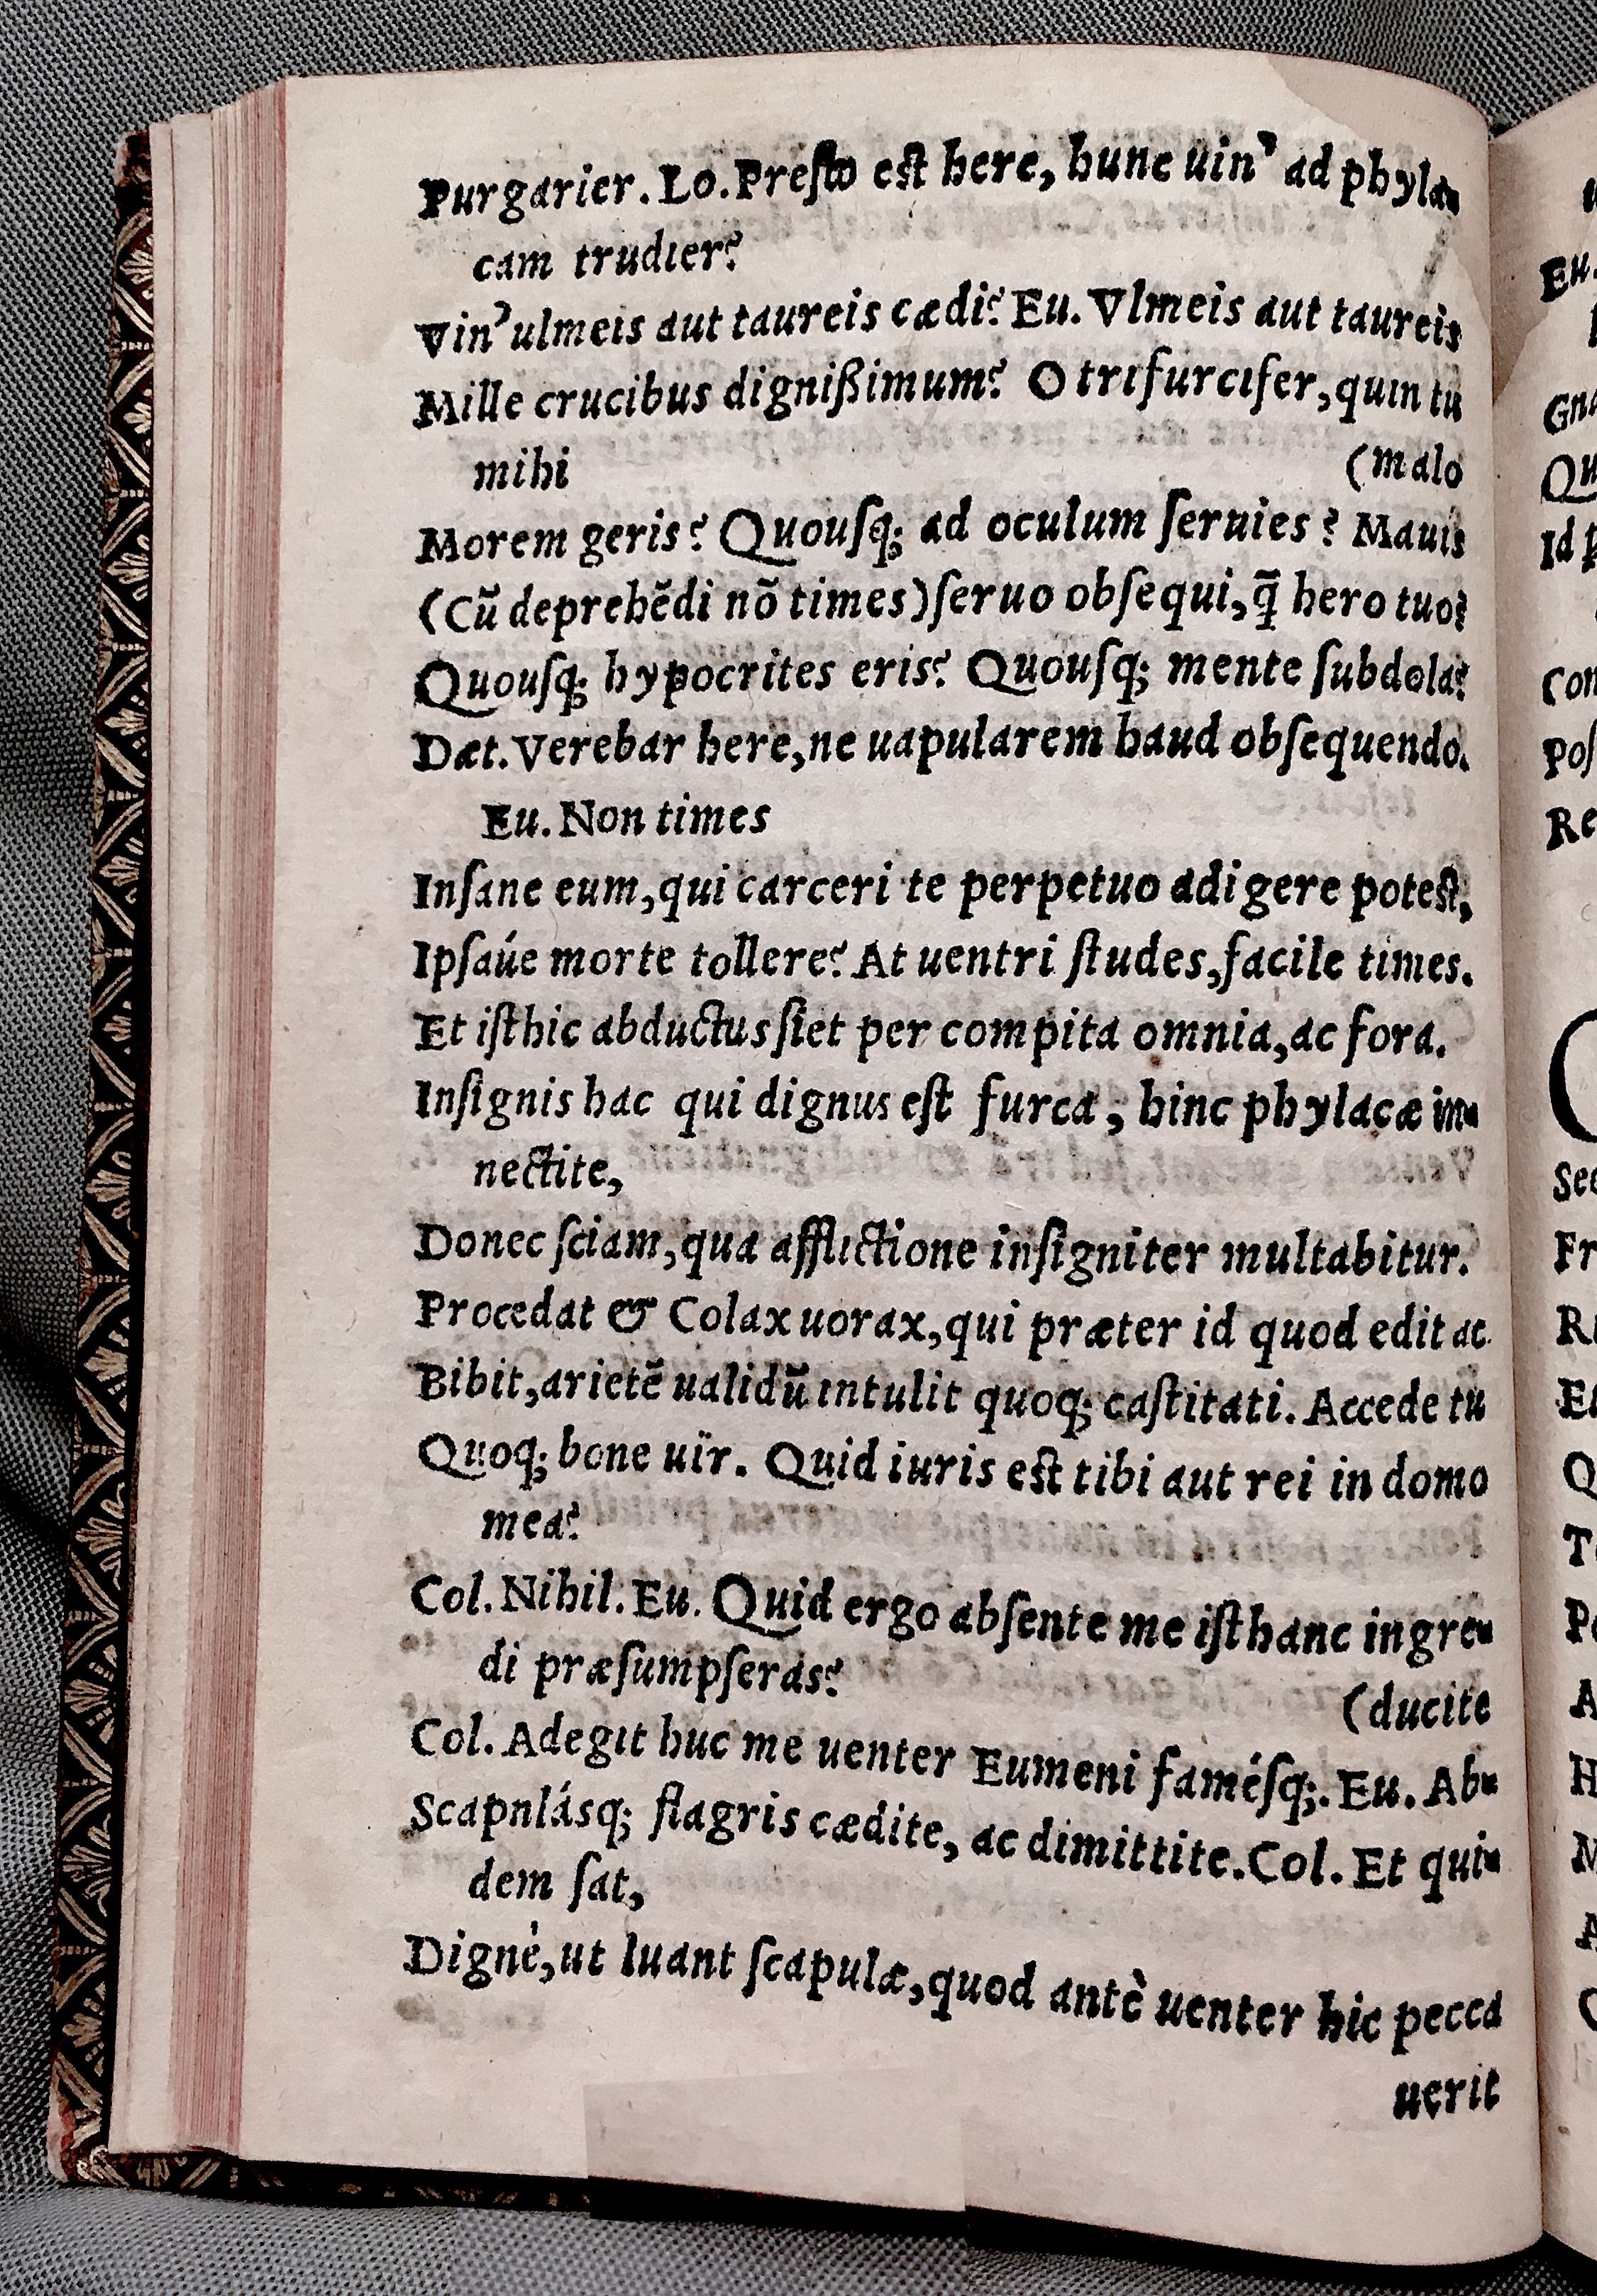 Purgarier. Lo. Presto est here, hunc uin' ad phyla-
cam trudier?
Vin' ulmeis aut taureis cædi? Eu. Vlmeis aut taureis
Mille crucibus dignißimum? O trifurcifer, quin tu
mihi (malo
Morem geris? Quousq; ad oculum seruies? Mauis
(Cũ deprehẽdi nõ times) seruo obsequi, q̃ hero tuo?
Quousq; hypocrites eris? Quousq; mente subdola?
Dæt. Verebar here, ne uapularem haud obsequendo.
Eu. Non times
Insane eum, qui carceri te perpetuo adigere potest,
Ipsaúe morte tollere? At uentri studes, facile times.
Et isthic abductus siet per compita omnia, ac fora.
Insignis hac qui dignus est furca, hinc phylacæ in-
nectite,
Donec sciam, qua afflictione insigniter multabitur.
Procedat & Colax uorax, qui præter id quod edit ac
Bibit, arietẽ ualidũ intulit quoq; castitati. Accede tu
Quoq; bone uïr. Quid iuris est tibi aut rei in domo
mea?
Col. Nihil. Eu. Quid ergo absente me isthanc ingre-
di præsumpseras?
(ducite
Col. Adegit huc me uenter Eumeni famésq;. Eu. Ab-
Scapnlásq; flagris cædite, ac dimittite. Col. Et qui-
dem sat,
Dignè, ut luant scapulæ, quod antè uenter hic pecca
uerit
Eu.
Gna
Qu
Id p
Con
Pos
Re
Sec
Fr